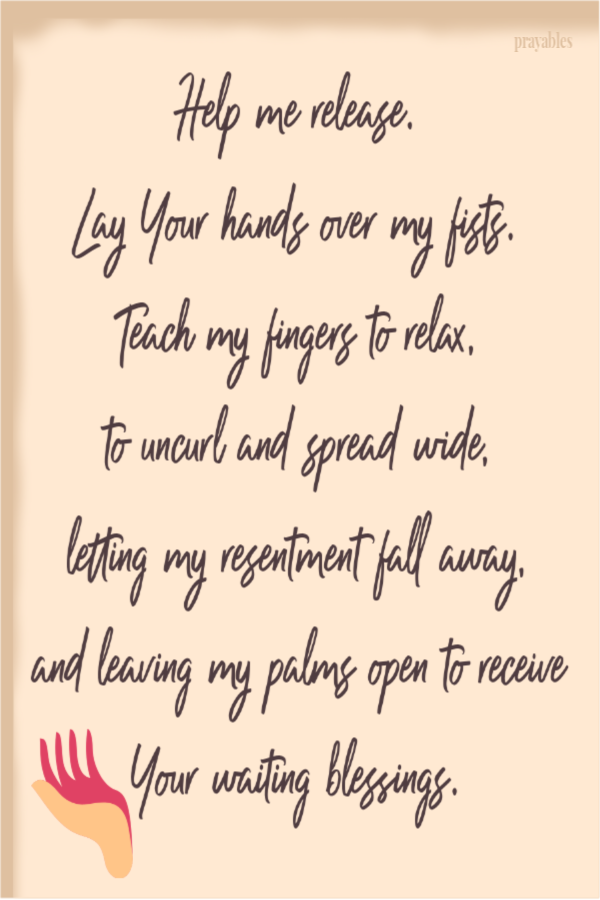 prayables
Help me release.
Lay Your hands over my fists.
Teach my fingers to relax,
to uncurl and spread wide,
letting my resentment fall away,
and leaving my palms open to receive
Your waiting blessings.